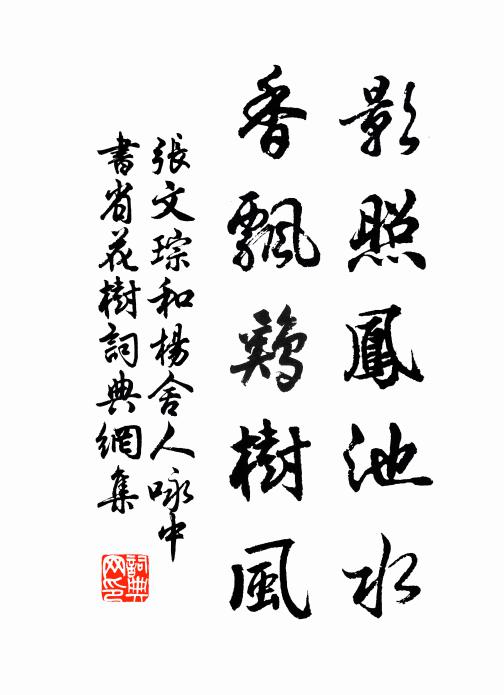 影照鳳池水
香飄雞樹風
張文琮和楊舍人咏中
書省花樹詞典網集
詞典
网印